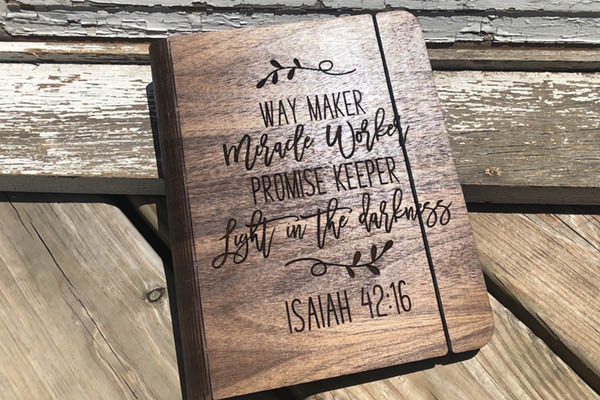 WAY MAKER
Miracle Worker
PROMISE KEEPER
Light in the darkness
ISAIAH 42:16